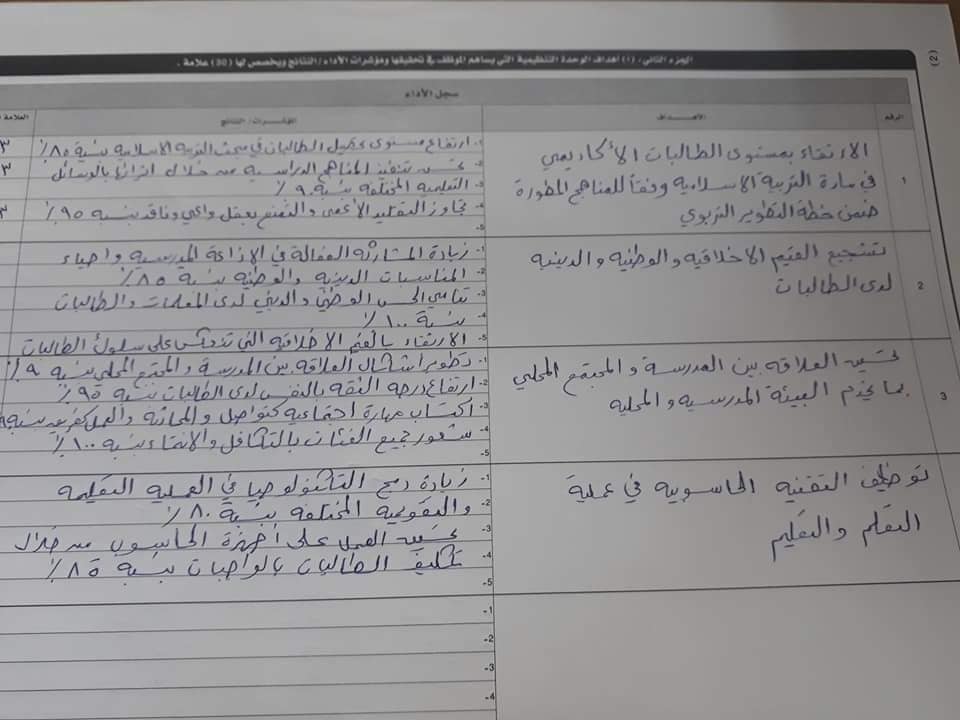 (2)
الجزء الثاني: (1) أهداف الوحدة التنظيمية التي يساهم الموظف في تحقيقها ومؤشرات الأداء/ النتائج ويخصص لها (30) علامة .
سجل الأداء
الرقم
الأهداف
المؤشرات/ النتائج
العلامة
1
الارتقاء بمستوى الطالبات الأكاديمي
في مادة التربية الاسلامية وفقاً للمناهج المطورة
ضمن خطة التطوير التربوي
1- ارتفاع مستوى تحصيل الطالبات في مبحث التربية الاسلامية بنسبة ٨٥٪
٣
2- تنفيذ المناهج الدراسية من خلال اثرائها بالوسائل
٣
3- التعليمية المختلفة بنسبة ٩٠٪
4- تجاوز التقليد الأعمى والتمتع بعقل واعي وناقد بنسبة ٩٥٪
٣
5-
2
تشجيع القيم الاخلاقية والوطنية والدينية
لدى الطالبات
1- زيادة المشاركة الفعالة في الاذاعة المدرسية واحياء
2- المناسبات الدينية والوطنية بنسبة ٨٥٪
3- تنامي الحس الوطني والديني لدى المعلمات والطالبات
4- بنسبة ١٠٠٪
5- الارتقاء بالقيم الاخلاقية التي تنعكس على سلوك الطالبات
3
تحسين العلاقة بين المدرسة والمجتمع المحلي
بما يخدم البيئة المدرسية والمحلية
1- تطوير اشكال العلاقة بين المدرسة والمجتمع المحلي بنسبة ٩٠٪
2- ارتفاع درجة الثقة بالنفس لدى الطالبات بنسبة ٩٥٪
3- اكتساب مهارة اجتماعية كتواصل والمحادثة والعمل كفريق بنسبة
4- شعور جميع الفئات بالتكافل والانتماء بنسبة ١٠٠٪
5-
توظيف التقنية الحاسوبية في عملية
التعلم والتعليم
1- زيادة دمج التكنولوجيا في العملية التعليمة
2- والتقويمية المختلفة بنسبة ٨٠٪
3- تحسين العمل على أجهزة الحاسوب من خلال
4- تكليف الطالبات بالواجبات بنسبة ٨٥٪
5-
1-
2-
3-
4-